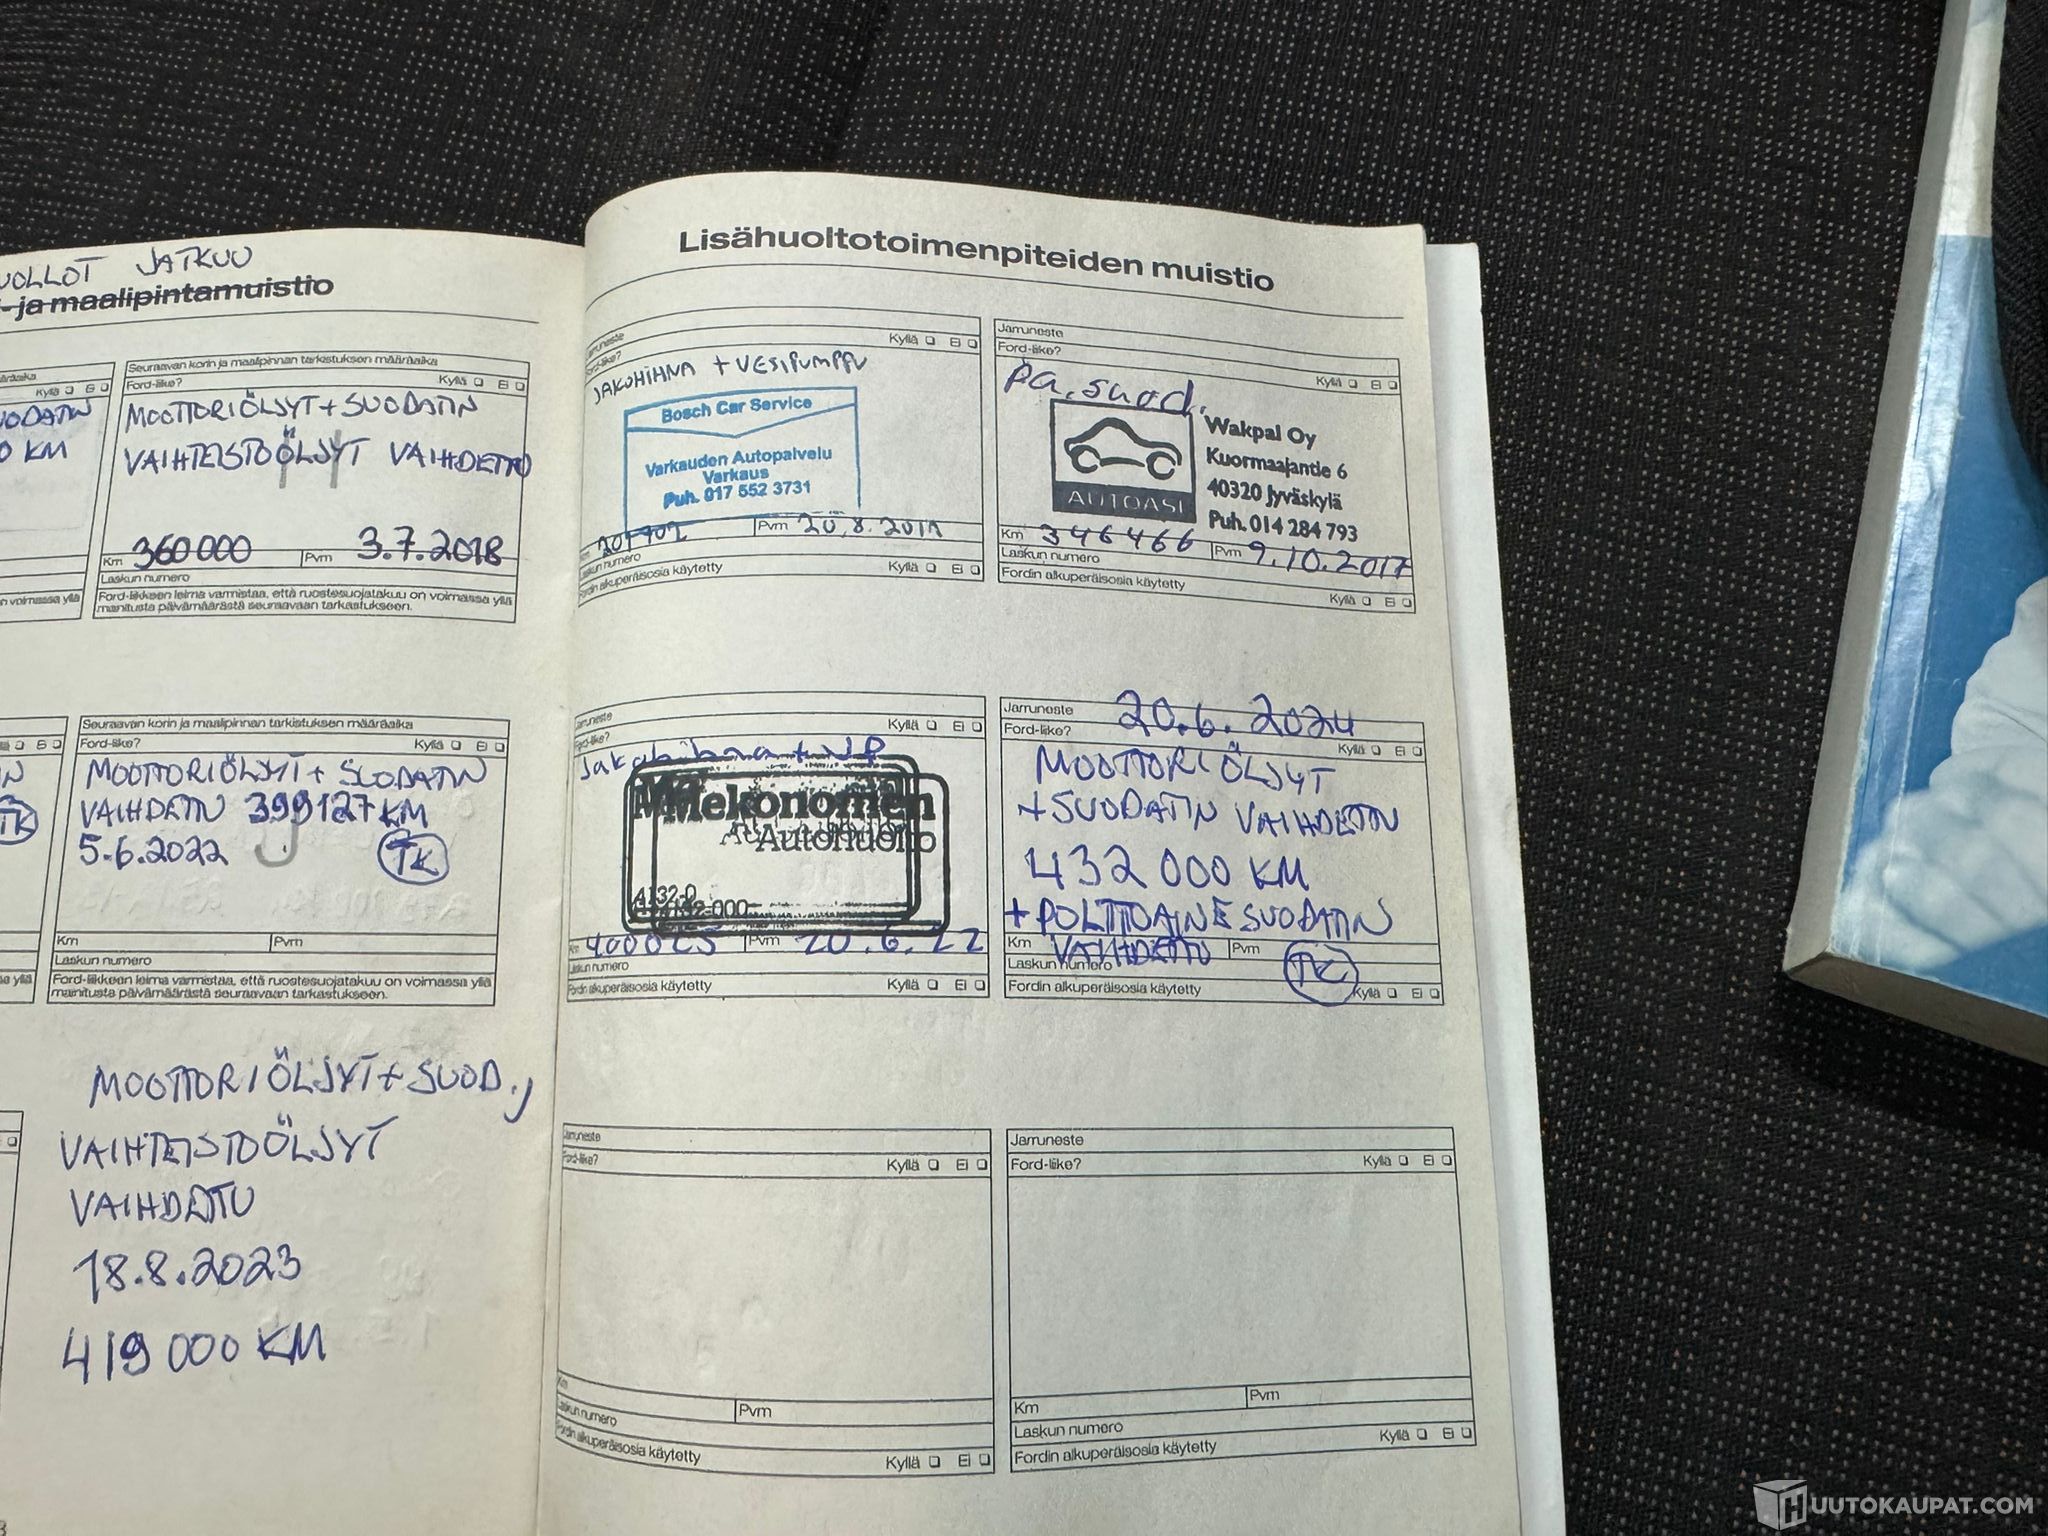 UOLLOT JATKUU
- ja maalipintamuistio
Seuraavan korin ja maalipinnan tarkistuksen määräaika
Ford-liike? Kyllä Ei
MOOTTORIÖLJYT + SUODATIN
VAIHTEISTOÖLJYT VAIHDETTU
Km 360000 Pvm 3.7.2018
Laskun numero
Ford-liikkeen leima varmistaa, että ruostesuojatakuu on voimassa yllä
mainitusta päivämäärästä seuraavaan tarkastukseen.
KM
Kyllä Ei
TK
Seuraavan korin ja maalipinnan tarkistuksen määräaika
Ford-liike? Kyllä Ei
MOOTTORIÖLJYT + SUODATIN
VAIHDETTU 399127 KM
5.6.2022 TK
Km Pvm
Laskun numero
Ford-liikkeen leima varmistaa, että ruostesuojatakuu on voimassa yllä
mainitusta päivämäärästä seuraavaan tarkastukseen.
MOOTTORIÖLJYT + SUOD.,
VAIHTEISTOÖLJYT
VAIHDETTU
18.8.2023
419 000 KM
Lisähuoltotoimenpiteiden muistio
Jarruneste
Ford-liike? Kyllä Ei
JAKOHIHNA + VESIPUMPPU
Bosch Car Service
Varkauden Autopalvelu
Varkaus
Puh. 017 552 3731
Pvm 20.8.
Laskun numero
Fordin alkuperäisosia käytetty Kyllä Ei
Jarruneste
Ford-liike? Kyllä Ei
pa.suod.
AUTOASI
Wakpal Oy
Kuormaajantie 6
40320 Jyväskylä
Puh. 014 284 793
Km 346466 Pvm 9.10.2017
Laskun numero
Fordin alkuperäisosia käytetty Kyllä Ei
Jarruneste
Ford-liike? Kyllä Ei
Jakohihna + VP
Mekonomen
Autohuolto
Km Pvm 20.6.22
Laskun numero
Fordin alkuperäisosia käytetty Kyllä Ei
Jarruneste 20.6.2024
Ford-liike? Kyllä Ei
MOOTTORIÖLJYT
+ SUODATIN VAIHDETTU
432 000 KM
+ POLTTOAINESUODATIN
Km VAIHDETTU Pvm
Laskun numero TK
Fordin alkuperäisosia käytetty Kyllä Ei
Jarruneste
Ford-liike? Kyllä Ei
Km Pvm
Laskun numero
Fordin alkuperäisosia käytetty Kyllä Ei
Jarruneste
Ford-liike? Kyllä Ei
Km Pvm
Laskun numero
Fordin alkuperäisosia käytetty Kyllä Ei
HUUTOKAUPAT.COM